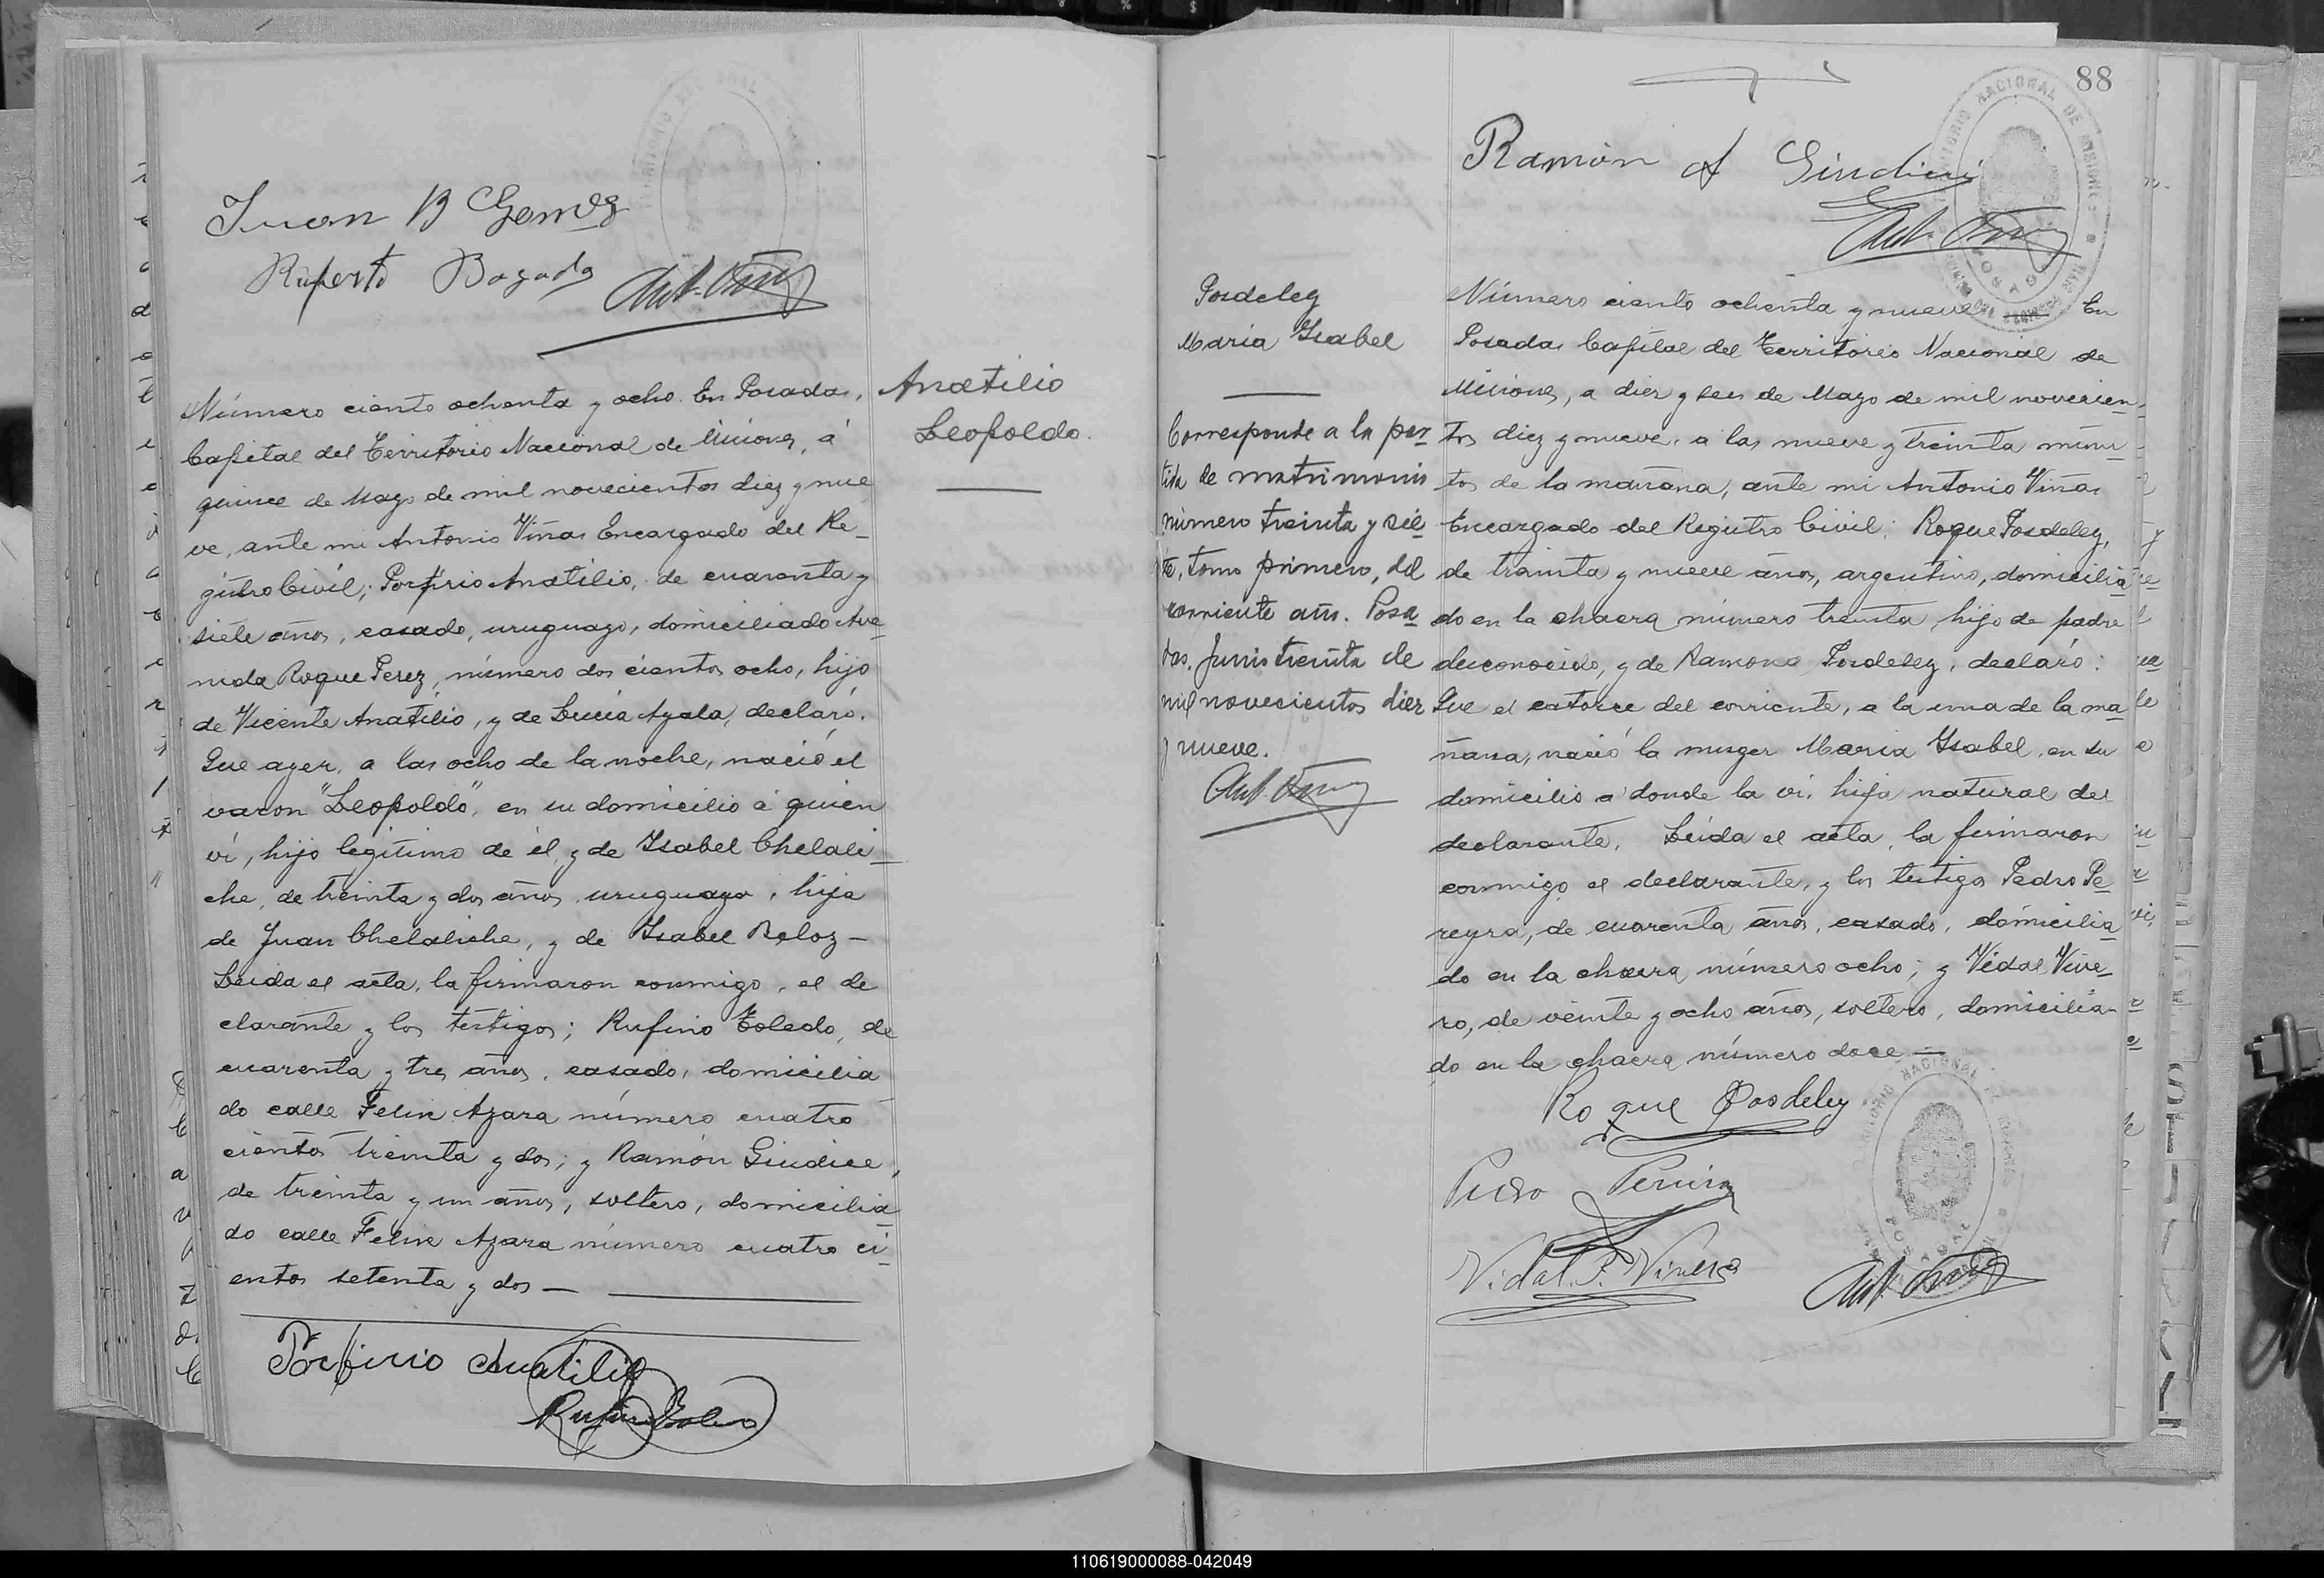 Juan B Gomez
Ruperto Bogado
Ant. Viñas
Número ciento ochenta y ocho. En Posadas,
Capital del Territorio Nacional de Misiones, á
quince de Mayo de mil novecientos diez y nue
ve, ante mi Antonio Viñas Encargado del Re_
gistro Civil; Porfirio Anatilio, de cuarenta y
siete años, casado, uruguayo, domiciliado Ave_
nida Roque Perez, número dos cientos ocho, hijo
de Vicente Anatilio, y de Lucia Ayala, declaró.
Que ayer, a las ocho de la noche, nació el
varon "Leopoldo", en su domicilio á quien
ví, hijo legitimo de él, y de Isabel Chelali_
che, de treinta y dos años, uruguaya, hija
de Juan Chelaliche, y de Isabel Beloz —
Leida el acta, la firmaron conmigo, el de
clarante y los testigos; Rufino Toledo, de
cuarenta y tres años, casado, domicilia
do calle Felix Azara número cuatro
cientos treinta y dos; y Ramón Giudice,
de treinta y un años, soltero, domicilia
do calle Felix Azara número cuatro ci
entos setenta y dos —
Porfirio Anatilio
Rufino Toledo
Anatilio
Leopoldo.
88
Ramón A Giudici
Ant. Viñas
Posdeley
Maria Isabel
Corresponde a la par
tida de matrimonio
número treinta y sie
te, tomo primero, del
corriente año. Posa
das, Junio treinta de
mil novecientos diez
y nueve.
Ant. Viñas
Número ciento ochenta y nueve — En
Posadas Capital del Territorio Nacional de
Misiones, a diez y seis de Mayo de mil novecien_
tos diez y nueve, a las nueve y treinta minu_
tos de la mañana, ante mi Antonio Viñas
Encargado del Registro Civil: Roque Posdeley,
de treinta y nueve años, argentino, domicilia
do en la chacra número treinta, hijo de padre
desconocido, y de Ramona Posdeley, declaró:
Que el catorce del corriente, a la una de la ma
ñana, nació la muger Maria Isabel, en su
domicilio a donde la ví, hija natural del
declarante. Leida el acta, la firmaron
conmigo el declarante, y los testigos Pedro Pe
reyra, de cuarenta años, casado, domicilia
do en la chacra número ocho; y Vidal Vive_
ro, de veinte y ocho años, soltero, domicilia_
do en la chacra número doce —
Roque Posdeley
Pedro Pereira
Vidal. P. Vivero
Ant. Viñas
110619000088-042049